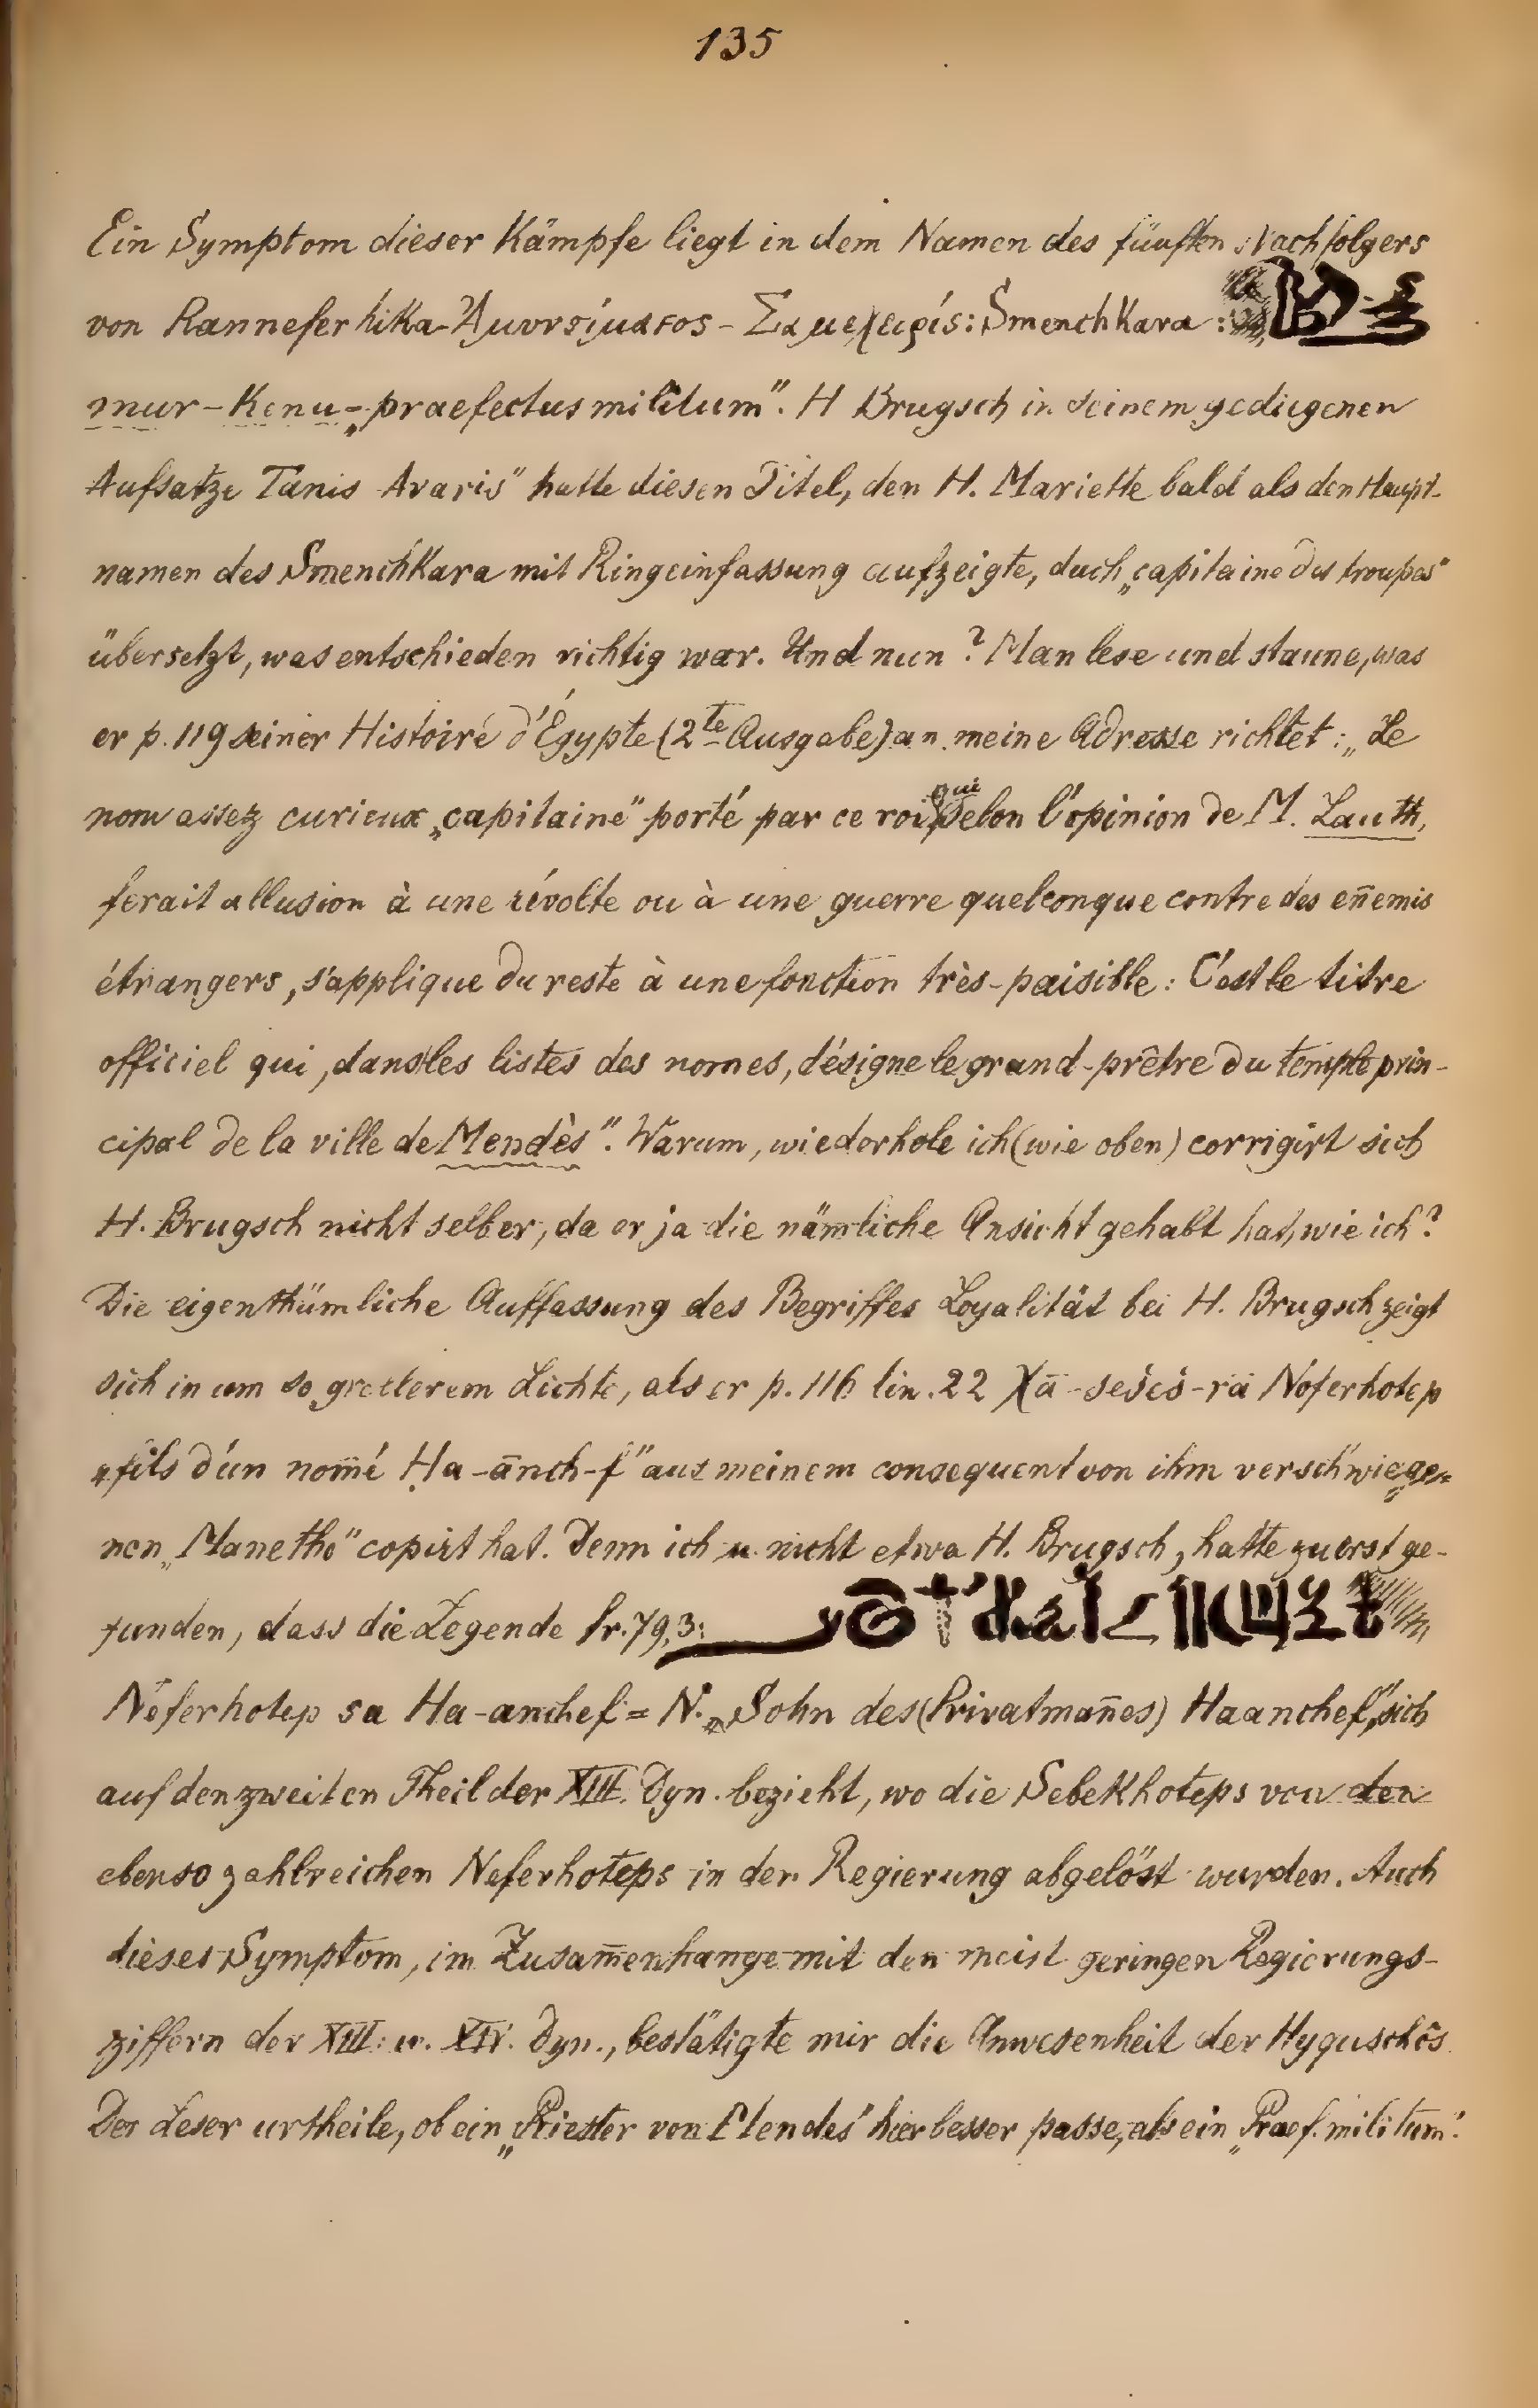 135
Ein Symptom dieser Kämpfe liegt in dem Namen des fünften Nachfolgers
von Ranneferhika - Σεμε : Smenchkara :
mur-Kenu = „praefectus militum". H Brugsch in seinem gediegenen
Aufsatze Tanis Avaris" hatte diesen Titel, den H. Mariette bald als den Haupt-
namen des Smenchkara mit Ringeinfassung aufzeigte, duch „capitaine des troupes"
übersetzt, was entschieden richtig war. Und nun? Man lese und staune, was
er p. 119 seiner Histoire d'Égypte (2te Ausgabe) an meine Adresse richtet: „Le
nom assez curieux „capitaine" porté par ce roi, qui selon l'opinion de M. Lauth,
ferait allusion à une révolte ou à une guerre quelconque contre des en̄emis
étrangers, s'applique du reste à une fonction très-paisible: C'est le titre
officiel qui, dans les listes des nomes, désigne le grand-prêtre du temple prin-
cipal de la ville de Mendès". Warum, wiederhole ich (wie oben) corrigirt sich
H. Brugsch nicht selber, da er ja die nämliche Ansicht gehabt hat, wie ich?
Die eigenthümliche Auffassung des Begriffes Loyalität bei H. Brugsch zeigt
sich in um so grellerem Lichte, als er p. 116 lin. 22 Χā-sešeš-rā Nóferhotep
„fils d'un nom̄é Ḥa-ānch-f" aus meinem consequent von ihm verschwiege-
nen „Manetho" copirt hat. Denn ich u. nicht etwa H. Brugsch, hatte zuerst ge-
funden, dass die Legende fr. 79,3:
Noferhotep sa Ha-anchef = N. „Sohn des (Privatman̄es) Haanchef", sich
auf den zweiten Theil der XIII. Dyn. bezieht, wo die Sebekhoteps von den
ebenso zahlreichen Neferhoteps in der Regierung abgelöst wurden. Auch
dieses Symptom, im Zusam̄enhange mit den meist geringen Regierungs-
ziffern der XIII. u. XIV. Dyn., bestätigte mir die Anwesenheit der Hyquschôs.
Der Leser urtheile, ob ein „Priester von Mendes" hier besser passe, als ein „Praef. militum".